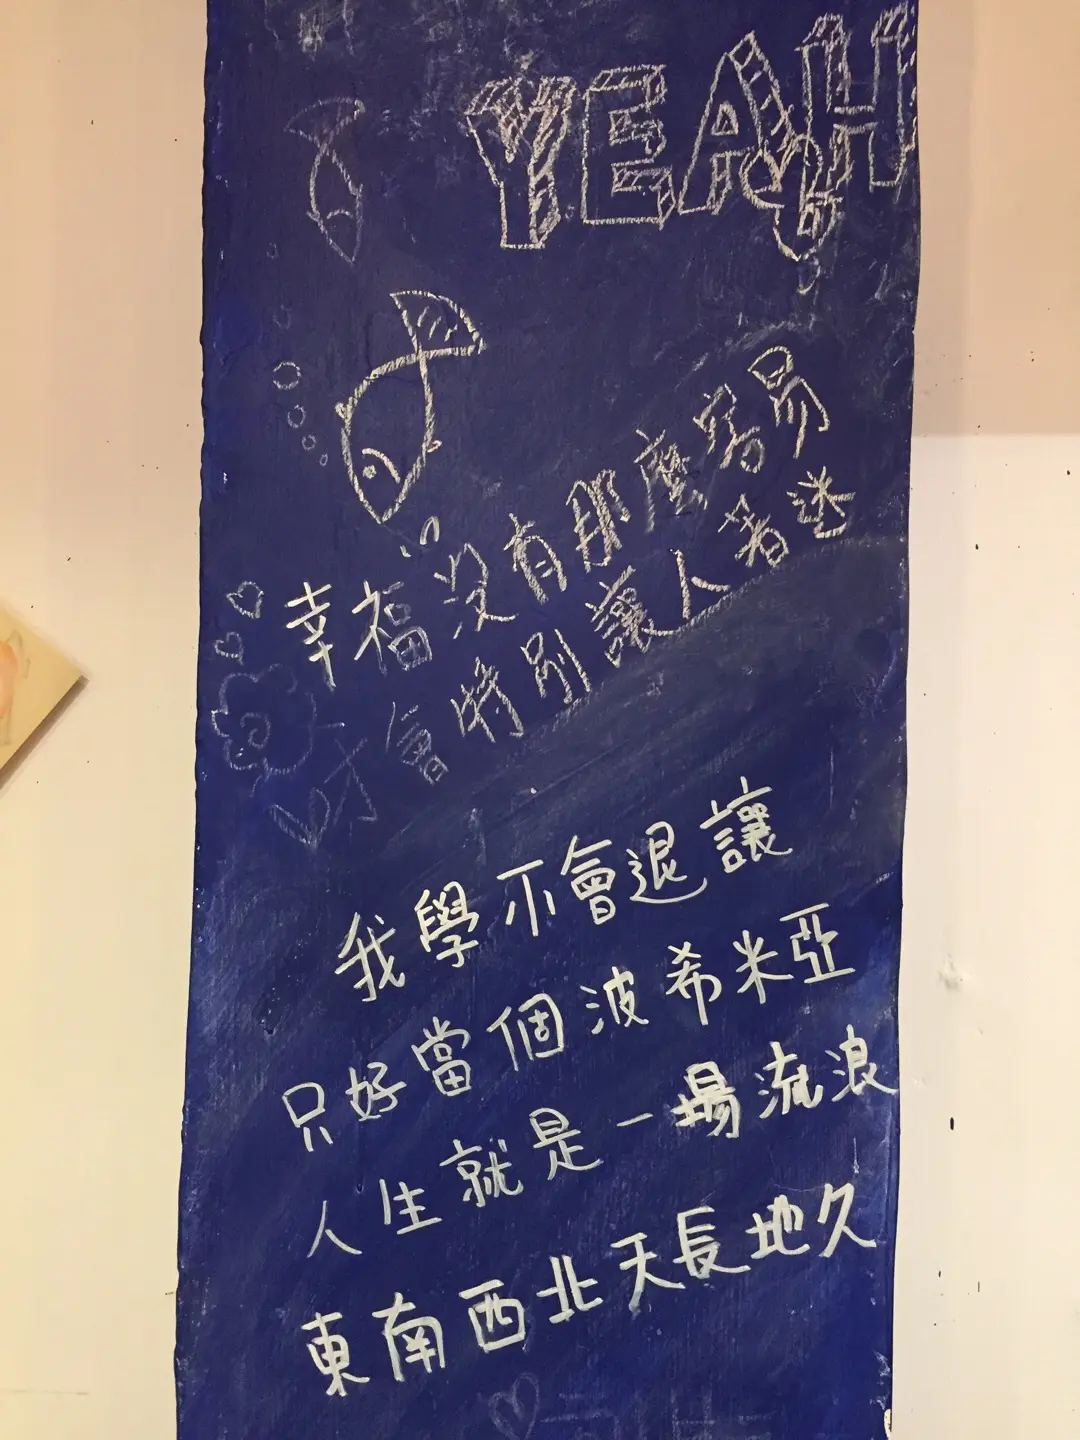 YEAH
幸福沒有那麼容易
才會特別讓人著迷
我學不會退讓
只好當個波希米亞
人生就是一場流浪
東南西北天長地久